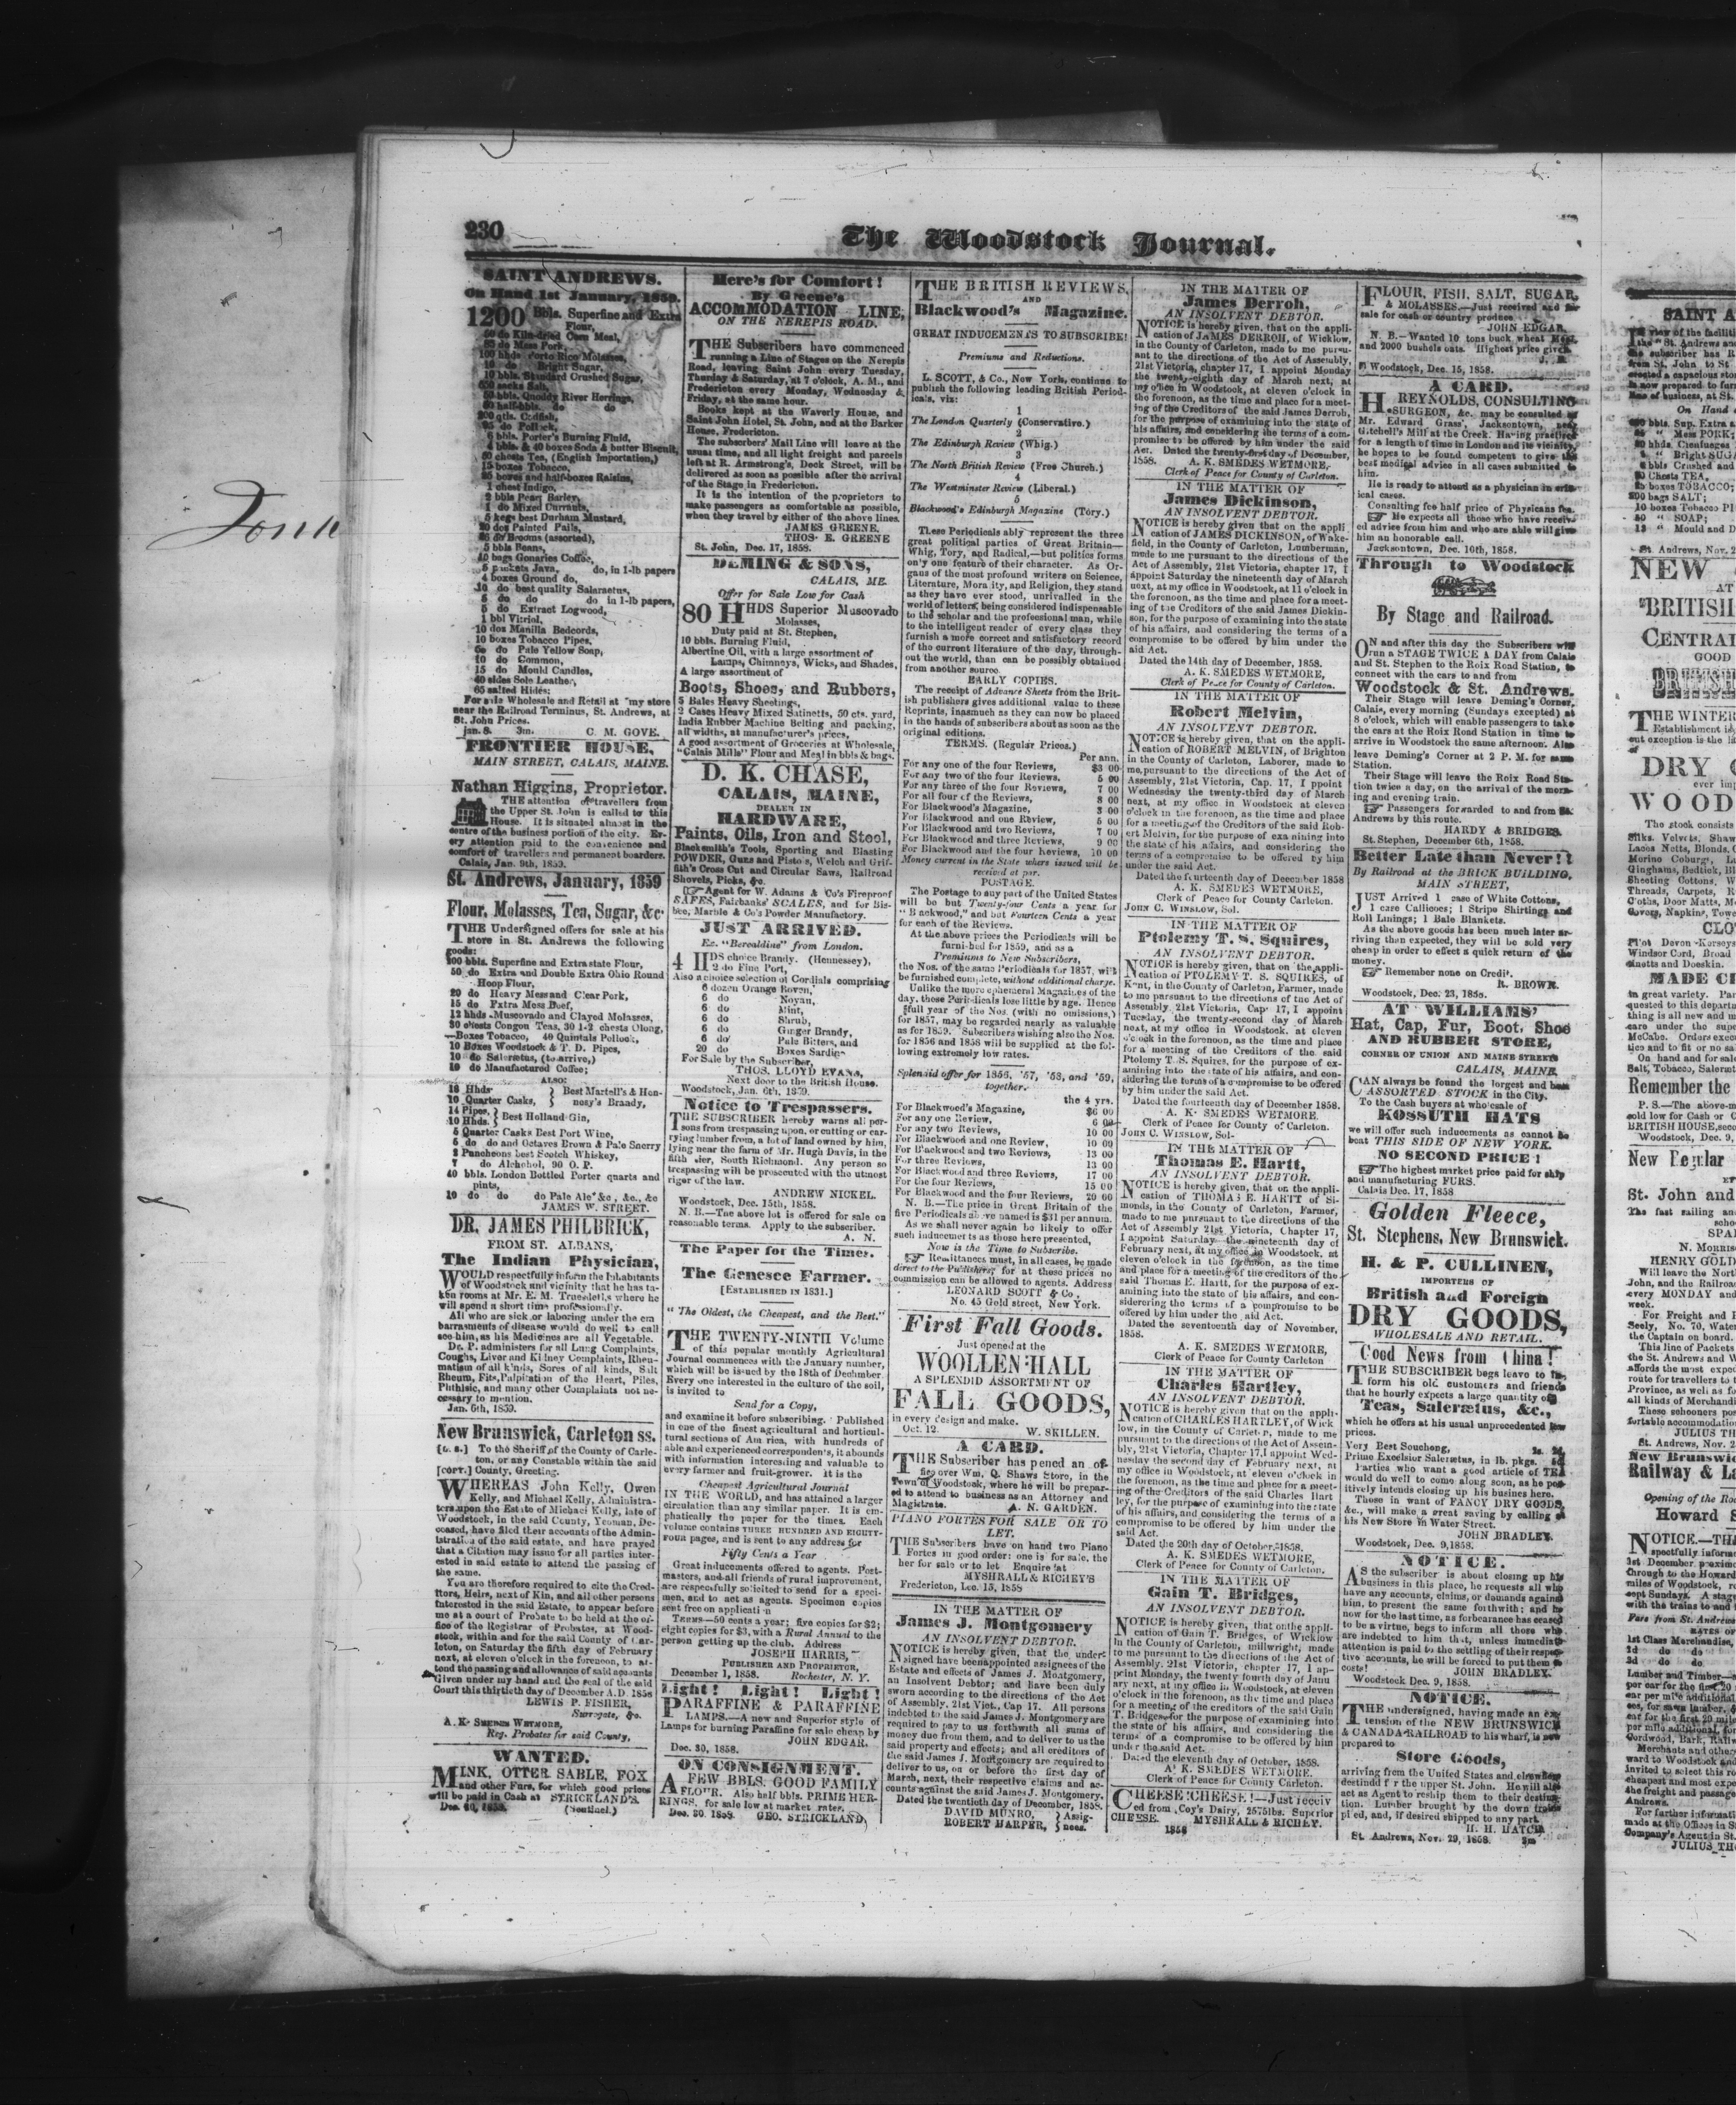 230
The Woodstock Journal.
SAINT ANDREWS.
On Hand 1st January, 1859.
1200 Bbls. Superfine and Extra
Flour,
50 do Kiln-dried Corn Meal,
do Mess Pork,
100 hhds Porto Rico Molasses,
10 do Bright Sugar,
10 bbls. Standard Crushed Sugar,
sacks Salt,
bbls. Quoddy River Herrings,
half-bbls. do do
200 qtls. Codfish,
do Pollock,
6 bbls. Porter's Burning Fluid,
bbls. & 40 boxes Soda & butter Biscuit,
chests Tea, (English Importation,)
15 boxes Tobacco,
boxes and half-boxes Raisins,
1 chest Indigo,
2 bbls Pearl Barley,
1 do Mixed Currants,
5 kegs best Durham Mustard,
20 doz Painted Pails,
do Brooms (assorted),
5 bbls Beans,
40 bags Gonaries Coffee,
5 packets Java, do, in 1-lb papers
4 boxes Ground do,
10 do best quality Salaraetus,
5 do do do in 1-lb papers,
5 do Extract Logwood,
1 bbl Vitriol,
10 doz Manilla Bedcords,
10 boxes Tobacco Pipes,
do Pale Yellow Soap,
10 do Common,
15 do Mould Candles,
40 sides Sole Leather,
65 salted Hides;
For sale Wholesale and Retail at my store
near the Railroad Terminus, St. Andrews, at
St. John Prices.
jan. 8. 3m. C. M. GOVE.
FRONTIER HOUSE,
MAIN STREET, CALAIS, MAINE.
Nathan Higgins, Proprietor.
THE attention of travellers from
the Upper St. John is called to this
House. It is situated almost in the
centre of the business portion of the city. Ev-
ery attention paid to the convenience and
comfort of travellers and permanent boarders.
Calais, Jan. 9th, 1859.
St. Andrews, January, 1859
Flour, Molasses, Tea, Sugar, &c
THE Undersigned offers for sale at his
store in St. Andrews the following
goods:
200 bbls. Superfine and Extra state Flour,
50 do Extra and Double Extra Ohio Round
Hoop Flour,
20 do Heavy Mess and Clear Pork,
15 do Extra Mess Beef,
12 hhds Muscovado and Clayed Molasses,
30 chests Congou Teas, 30 1-2 chests Olong,
Boxes Tobacco, 40 Quintals Pollock,
10 Boxes Woodstock & T. D. Pipes,
10 do Saleraetus, (to arrive,)
10 do Manufactured Coffee;
ALSO:
18 Hhds
10 Quarter Casks, } Best Martell's & Hen-
nesy's Brandy,
14 Pipes,
10 Hhds. } Best Holland Gin,
5 Quarter Casks Best Port Wine,
6 do do and Octaves Brown & Pale Sherry
2 Puncheons best Scotch Whiskey,
7 do Alchohol, 90 O. P.
40 bbls. London Bottled Porter quarts and
pints,
10 do do do Pale Ale &c , &c., &c
JAMES W. STREET.
DR. JAMES PHILBRICK,
FROM ST. ALBANS,
The Indian Physician,
WOULD respectfully inform the Inhabitants
of Woodstock and vicinity that he has ta-
ken rooms at Mr. E. M. Truesdell's where he
will spend a short time professionally.
All who are sick or laboring under the em
barrasments of disease would do well to call
see him, as his Medicines are all Vegetable.
Dr. P. administers for all Lung Complaints,
Coughs, Liver and Kidney Complaints, Rheu-
matism of all kinds, Sores of all kinds, Salt
Rheum, Fits, Palpitation of the Heart, Piles,
Phthisic, and many other Complaints not ne-
cessary to mention.
Jan. 6th, 1859.
New Brunswick, Carleton ss.
[L. S.] To the Sheriff of the County of Carle-
ton, or any Constable within the said
[COPY.] County, Greeting.
WHEREAS John Kelly, Owen
Kelly, and Michael Kelly, Administra-
ters upon the Estate of Michael Kelly, late of
Woodstock, in the said County, Yeoman, De-
ceased, have filed their accounts of the Admin-
istration of the said estate, and have prayed
that a Citation may issue for all parties inter-
ested in said estate to attend the passing of
the same.
You are therefore required to cite the Cred-
itors, Heirs, next of Kin, and all other persons
interested in the said Estate, to appear before
me at a court of Probate to be held at the of-
fice of the Registrar of Probates, at Wood-
stock, within and for the said County of Car-
leton, on Saturday the fifth day of February
next, at eleven o'clock in the forenoon, to at-
tend the passing and allowance of said accounts
Given under my hand and the seal of the said
Court this thirtieth day of December A.D. 1858
LEWIS P. FISHER,
Surrogate, &c.
A. K. SMEDES WETMORE,
Reg. Probates for said County,
WANTED.
MINK, OTTER SABLE, FOX
and other Furs, for which good prices
will be paid in Cash at STRICKLAND'S.
Dec. 30, 1858. (Sentinel.)
Here's for Comfort!
By Greene's
ACCOMMODATION LINE,
ON THE NEREPIS ROAD.
THE Subscribers have commenced
running a Line of Stages on the Nerepis
Road, leaving Saint John every Tuesday,
Thursday & Saturday, at 7 o'clock, A. M., and
Fredericton every Monday, Wednesday &
Friday, at the same hour.
Books kept at the Waverly House, and
Saint John Hotel, St. John, and at the Barker
House, Fredericton.
The subscribers' Mail Line will leave at the
usual time, and all light freight and parcels
left at R. Armstrong's, Dock Street, will be
delivered as soon as possible after the arrival
of the Stage in Fredericton.
It is the intention of the proprietors to
make passengers as comfortable as possible,
when they travel by either of the above lines.
JAMES GREENE.
THOS. E. GREENE
St. John, Dec. 17, 1858.
DEMING & SONS,
CALAIS, ME.
Offer for Sale Low for Cash
80 HHDS Superior Muscovado
Molasses,
Duty paid at St. Stephen,
10 bbls. Burning Fluid,
Albertine Oil, with a large assortment of
Lamps, Chimneys, Wicks, and Shades,
A large assortment of
Boots, Shoes, and Rubbers,
5 Bales Heavy Sheetings,
2 Cases Heavy Mixed Satinetts, 50 cts. yard,
India Rubber Machine Belting and packing,
all widths, at manufacturer's prices,
A good assortment of Groceries at Wholesale,
"Calais Mills" Flour and Meal in bbls & bags.
D. K. CHASE,
CALAIS, MAINE,
DEALER IN
HARDWARE,
Paints, Oils, Iron and Steel,
Blacksmith's Tools, Sporting and Blasting
POWDER, Guns and Pistols, Welch and Grif-
fith's Cross Cut and Circular Saws, Railroad
Shovels, Picks, &c.
☞ Agent for W. Adams & Co's Fireproof
SAFES, Fairbanks' SCALES, and for Bis-
bee, Marble & Co's Powder Manufactory.
JUST ARRIVED.
Ex. "Berealdine" from London.
4 HDS choice Brandy. (Hennessey),
2 do Fine Port,
Also a choice selection of Cordials comprising
6 dozen Orange Boven,
6 do Noyan,
6 do Mint,
6 do Shrub,
6 do Ginger Brandy,
6 do Pale Bitters, and
20 do Boxes Sardin
For Sale by the Subscriber,
THOS. LLOYD EVANS,
Next door to the British House.
Woodstock, Jan. 6th, 1859.
Notice to Trespassers.
THE SUBSCRIBER hereby warns all per-
sons from trespassing upon, or cutting or car-
rying lumber from, a lot of land owned by him,
lying near the farm of Mr. Hugh Davis, in the
fifth tier, South Richmond. Any person so
trespassing will be prosecuted with the utmost
rigor of the law.
ANDREW NICKEL.
Woodstock, Dec. 15th, 1858.
N. B.—The above lot is offered for sale on
reasonable terms. Apply to the subscriber.
A. N.
The Paper for the Times.
The Genesee Farmer.
[ESTABLISHED IN 1831.]
"The Oldest, the Cheapest, and the Best."
THE TWENTY-NINTH Volume
of this popular monthly Agricultural
Journal commences with the January number,
which will be issued by the 18th of December.
Every one interested in the culture of the soil,
is invited to
Send for a Copy,
and examine it before subscribing. Published
in one of the finest agricultural and horticul-
tural sections of Am rica, with hundreds of
able and experienced correspondents, it abounds
with information interesting and valuable to
every farmer and fruit-grower. It is the
Cheapest Agricultural Journal
IN THE WORLD, and has attained a larger
circulation than any similar paper. It is em-
phatically the paper for the times. Each
volume contains THREE HUNDRED AND EIGHTY-
FOUR pages, and is sent to any address for
Fifty Cents a Year
Great inducements offered to agents. Post-
masters, and all friends of rural improvement,
are respectfully solicited to send for a speci-
men, and to act as agents. Specimen copies
sent free on applicati n
TERMS—50 cents a year; five copies for $2;
eight copies for $3, with a Rural Annual to the
person getting up the club. Address
JOSEPH HARRIS,
PUBLISHER AND PROPRIETOR,
December 1, 1858. Rochester, N. Y.
Light! Light! Light!
PARAFFINE & PARAFFINE
LAMPS.—A new and Superior style of
Lamps for burning Paraffine for sale cheap by
JOHN EDGAR.
Dec. 30, 1858.
ON CONSIGNMENT.
A FEW BBLS. GOOD FAMILY
FLOUR. Also half bbls. PRIME HER-
RINGS, for sale low at market rates.
Dec. 30. 1858. GEO. STRICKLAND,
THE BRITISH REVIEWS,
AND
Blackwood's Magazine.
GREAT INDUCEMENTS TO SUBSCRIBE!
Premiums and Reductions.
L. SCOTT, & Co., New York, continue to
publish the following leading British Period-
icals, viz:
1
The London Quarterly (Conservative.)
2
The Edinburgh Review (Whig.)
3
The North British Review (Free Church.)
4
The Westminster Review (Liberal.)
5
Blackwood's Edinburgh Magazine (Tory.)
These Periodicals ably represent the three
great political parties of Great Britain—
Whig, Tory, and Radical,—but politics forms
only one feature of their character. As Or-
gans of the most profound writers on Science,
Literature, Mora ity, and Religion, they stand
as they have ever stood, unrivalled in the
world of letters, being considered indispensable
to the scholar and the professional man, while
to the intelligent reader of every class they
furnish a more correct and satisfactory record
of the current literature of the day, through-
out the world, than can be possibly obtained
from another source.
EARLY COPIES.
The receipt of Advance Sheets from the Brit-
ish publishers gives additional value to these
Reprints, inasmuch as they can now be placed
in the hands of subscribers about as soon as the
original editions.
TERMS. (Regular Prices.)
Per ann.
For any one of the four Reviews, $3 00
For any two of the four Reviews, 5 00
For any three of the four Reviews, 7 00
For all four of the Reviews, 8 00
For Blackwood's Magazine, 3 00
For Blackwood and one Review, 5 00
For Blackwood and two Reviews, 7 00
For Blackwood and three Reviews, 9 00
For Blackwood and the four Reviews, 10 00
Money current in the State where issued will be
received at par.
POSTAGE.
The Postage to any part of the United States
will be but Twenty-four Cents a year for
"B ackwood," and but Fourteen Cents a year
for each of the Reviews.
At the above prices the Periodicals will be
furni-hed for 1859, and as a
Premiums to New Subscribers,
the Nos. of the same Periodicals for 1857, will
be furnished complete, without additional charge.
Unlike the more ephemeral Magazines of the
day, these Periodicals lose little by age. Hence
full year of the Nos. (with no omissions,)
for 1857, may be regarded nearly as valuable
as for 1859. Subscribers wishing also the Nos.
for 1856 and 1858 will be supplied at the fol-
lowing extremely low rates.
Splendid offer for 1856, '57, '58, and '59,
together.
the 4 yrs.
For Blackwood's Magazine, $6 00
For any one Review, 6 00
For any two Reviews, 10 00
For Blackwood and one Review, 10 00
For Blackwood and two Reviews, 13 00
For three Reviews, 13 00
For Blackwood and three Reviews, 17 00
For the four Reviews, 15 00
For Blackwood and the four Reviews, 20 00
N. B.—The price in Great Britain of the
five Periodicals above named is $31 per annum.
As we shall never again be likely to offer
such inducements as those here presented,
Now is the Time to Subscribe.
☞ Remittances must, in all cases, be made
direct to the Publishers, for at these prices no
commission can be allowed to agents. Address
LEONARD SCOTT & Co,
No. 45 Gold street, New York.
First Fall Goods.
Just opened at the
WOOLLEN HALL
A SPLENDID ASSORTMENT OF
FALL GOODS,
in every design and make.
Oct. 12. W. SKILLEN.
A CARD.
THE Subscriber has pened an of-
fice over Wm, Q. Shaws Store, in the
Town of Woodstock, where he will be prepar-
ed to attend to business as an Attorney and
Magistrate. A. N. GARDEN.
PIANO FORTES FOR SALE OR TO
LET.
THE Subscribers have on hand two Piano
Fortes in good order: one is for sale, the
her for sale or to let Enquire at
MYSHRALL & RICHEY'S
Fredericton, Dec. 15, 1858
IN THE MATTER OF
James J. Montgomery
AN INSOLVENT DEBTOR.
NOTICE is hereby given, that the under
signed have been appointed assignees of the
Estate and effects of James J. Montgomery,
an Insolvent Debtor; and have been duly
sworn according to the directions of the Act
of Assembly, 21st Vict., Cap 17. All persons
indebted to the said James J. Montgomery are
required to pay to us forthwith all sums of
money due from them, and to deliver to us the
said property and effects; and all creditors of
the said James J. Montgomery are required to
deliver to us, on or before the first day of
March, next, their respective claims and ac-
counts against the said James J. Montgomery.
Dated the twentieth day of December, 1858.
DAVID MUNRO,
ROBERT HARPER, } Assig-
nees.
IN THE MATTER OF
James Derroh,
AN INSOLVENT DEBTOR.
NOTICE is hereby given, that on the appli-
cation of JAMES DERROH, of Wicklow,
in the County of Carleton, made to me pursu-
ant to the directions of the Act of Assembly,
21st Victoria, chapter 17, I appoint Monday
the twenty-eighth day of March next, at
my office in Woodstock, at eleven o'clock in
the forenoon, as the time and place for a meet-
ing of the Creditors of the said James Derroh,
for the purpose of examining into the state of
his affairs, and considering the terms of a com-
promise to be offered by him under the said
Act. Dated the twenty-first day of December,
1858. A. K. SMEDES WETMORE,
Clerk of Peace for County of Carleton.
IN THE MATTER OF
James Dickinson,
AN INSOLVENT DEBTOR.
NOTICE is hereby given that on the appli
cation of JAMES DICKINSON, of Wake-
field, in the County of Carleton, Lumberman,
made to me pursuant to the directions of the
Act of Assembly, 21st Victoria, chapter 17, I
appoint Saturday the nineteenth day of March
next, at my office in Woodstock, at 11 o'clock in
the forenoon, as the time and place for a meet-
ing of the Creditors of the said James Dickin-
son, for the purpose of examining into the state
of his affairs, and considering the terms of a
compromise to be offered by him under the
aid Act.
Dated the 14th day of December, 1858.
A. K. SMEDES WETMORE,
Clerk of Peace for County of Carleton.
IN THE MATTER OF
Robert Melvin,
AN INSOLVENT DEBTOR.
NOTICE is hereby given, that on the appli-
cation of ROBERT MELVIN, of Brighton
in the County of Carleton, Laborer, made to
me, pursuant to the directions of the Act of
Assembly, 21st Victoria, Cap. 17, I ppoint
Wednesday the twenty-third day of March
next, at my office in Woodstock at eleven
o'clock in the forenoon, as the time and place
for a meeting of the Creditors of the said Rob-
ert Melvin, for the purpose of exa mining into
the state of his affairs, and considering the
terms of a compromise to be offered by him
under the said Act.
Dated the fourteenth day of December 1858
A. K. SMEDES WETMORE,
Clerk of Peace for County Carleton.
JOHN C. WINSLOW, Sol.
IN THE MATTER OF
Ptolemy T. S. Squires,
AN INSOLVENT DEBTOR.
NOTICE is hereby given, that on the appli-
cation of PTOLEMY T. S. SQUIRES, of
Kent, in the County of Carleton, Farmer, made
to me pursuant to the directions of the Act of
Assembly, 21st Victoria, Cap. 17, I appoint
Tuesday, the twenty-second day of March
next, at my office in Woodstock, at eleven
o'clock in the forenoon, as the time and place
for a meeting of the Creditors of the said
Ptolemy T. S. Squires, for the purpose of ex-
amining into the state of his affairs, and con-
sidering the terms of a compromise to be offered
by him under the said Act.
Dated the fourteenth day of December 1858.
A. K. SMEDES WETMORE,
Clerk of Peace for County of Carleton.
JOHN C. WINSLOW, Sol-
IN THE MATTER OF
Thomas E. Hartt,
AN INSOLVENT DEBTOR.
NOTICE is hereby given, that on the appli-
cation of THOMAS E. HARTT of Si-
monds, in the County of Carleton, Farmer,
made to me pursuant to the directions of the
Act of Assembly 21st Victoria, Chapter 17,
I appoint Saturday the nineteenth day of
February next, at my office in Woodstock, at
eleven o'clock in the forenoon, as the time
and place for a meeting of the creditors of the
said Thomas E. Hartt, for the purpose of ex-
amining into the state of his affairs, and con-
siderering the terms of a compromise to be
offered by him under the aid Act.
Dated the seventeenth day of November,
1858.
A. K. SMEDES WETMORE,
Clerk of Peace for County Carleton
IN THE MATTER OF
Charles Hartley,
AN INSOLVENT DEBTOR.
NOTICE is hereby given that on the appli-
cation of CHARLES HARTLEY, of Wick
low, in the County of Carleton, made to me
pursuant to the directions of the Act of Assem-
bly, 21st Victoria, Chapter 17, I appoint Wed-
nesday the second day of February next, at
my office in Woodstock, at eleven o'clock in
the forenoon, as the time and place for a meet-
ing of the Creditors of the said Charles Hart
ley, for the purpose of examining into the state
of his affairs, and considering the terms of a
compromise to be offered by him under the
said Act.
Dated the 20th day of October, 1858.
A. K. SMEDES WETMORE,
Clerk of Peace for County of Carleton.
IN THE MATTER OF
Gain T. Bridges,
AN INSOLVENT DEBTOR.
NOTICE is hereby given, that on the appli-
cation of Gain T. Bridges, of Wicklow
in the County of Carleton, millwright, made
to me pursuant to the directions of the Act of
Assembly, 21st Victoria, chapter 17, I ap-
point Monday, the twenty fourth day of Janu
ary next, at my office in Woodstock, at eleven
o'clock in the forenoon, as the time and place
for a meeting of the creditors of the said Gain
T. Bridges, for the purpose of examining into
the state of his affairs, and considering the
terms of a compromise to be offered by him
under the said Act.
Dated the eleventh day of October, 1858.
A. K. SMEDES WETMORE.
Clerk of Peace for County Carleton.
CHEESE! CHEESE!—Just receiv
ed from Coy's Dairy, 2575lbs. Superior
CHEESE. MYSHRALL & RICHEY.
1858
FLOUR, FISH, SALT, SUGAR,
& MOLASSES.—Just received and for
sale for cash or country produce
JOHN EDGAR.
N. B.—Wanted 10 tons buck wheat Meal,
and 2000 bushels oats. Highest price given.
J. E.
Woodstock, Dec. 15, 1858.
A CARD.
H REYNOLDS, CONSULTING
SURGEON, &c. may be consulted at
Mr. Edward Grass', Jacksontown, near
Gitchell's Mill at the Creek. Having practiced
for a length of time in London and its vicinity,
he hopes to be found competent to give the
best medical advice in all cases submitted to
him.
He is ready to attend as a physician in crit-
ical cases.
Consulting fee half price of Physicians fee.
☞ He expects all those who have receiv-
ed advice from him and who are able will give
him an honorable call.
Jacksontown, Dec. 10th, 1858.
Through to Woodstock
By Stage and Railroad.
ON and after this day the Subscribers will
run a STAGE TWICE A DAY from Calais
and St. Stephen to the Roix Road Station, to
connect with the cars to and from
Woodstock & St. Andrews.
Their Stage will leave Deming's Corner,
Calais, every morning (Sundays excepted) at
8 o'clock, which will enable passengers to take
the cars at the Roix Road Station in time to
arrive in Woodstock the same afternoon. Also
leave Deming's Corner at 2 P. M. for same
Station.
Their Stage will leave the Roix Road Sta-
tion twice a day, on the arrival of the morn-
ing and evening train.
☞ Passengers forwarded to and from St.
Andrews by this route.
HARDY & BRIDGES.
St. Stephen, December 6th, 1858.
Better Late than Never!!
By Railroad at the BRICK BUILDING,
MAIN STREET,
JUST Arrived 1 case of White Cottons,
1 case Callicoes; 1 Stripe Shirtings and
Roll Linings; 1 Bale Blankets.
As the above goods has been much later ar-
riving than expected, they will be sold very
cheap in order to effect a quick return of the
money.
☞ Remember none on Credit.
R. BROWN.
Woodstock, Dec. 23, 1858.
AT WILLIAMS'
Hat, Cap, Fur, Boot, Shoe
AND RUBBER STORE,
CORNER OF UNION AND MAINE STREETS
CALAIS, MAINE,
CAN always be found the largest and best
ASSORTED STOCK in the City.
To the Cash buyers at wholesale of
KOSSUTH HATS
we will offer such inducements as cannot be
beat THIS SIDE OF NEW YORK.
NO SECOND PRICE!
☞ The highest market price paid for ship
and manufacturing FURS.
Calais Dec. 17, 1858
Golden Fleece,
St. Stephens, New Brunswick.
H. & P. CULLINEN,
IMPORTERS OF
British and Foreign
DRY GOODS,
WHOLESALE AND RETAIL.
Good News from China!
THE SUBSCRIBER begs leave to in-
form his old customers and friends
that he hourly expects a large quantity of
Teas, Saleraetus, &c.,
which he offers at his usual unprecedented low
prices.
Very Best Souchong,
Prime Excelsior Saleraetus, in lb. pkgs.
Parties who want a good article of TEA
would do well to come along soon, as he pos-
itively intends closing up his busines here.
Those in want of FANCY DRY GOODS,
&c., will make a great saving by calling at
his New Store in Water Street.
JOHN BRADLEY.
Woodstock, Dec. 9, 1858.
NOTICE.
AS the subscriber is about closing up his
business in this place, he requests all who
have any accounts, claims, or demands against
him, to present the same forthwith; and he
now for the last time, as forbearance has ceased
to be a virtue, begs to inform all those who
are indebted to him that, unless immediate
attention is paid to the settling of their respec-
tive accounts, he will be forced to put them to
costs! JOHN BRADLEY.
Woodstock Dec. 9, 1858.
NOTICE.
THE undersigned, having made an ex-
tension of the NEW BRUNSWICK
& CANADA RAILROAD to his wharf, is now
prepared to
Store Goods,
arriving from the United States and elsewhere
destindd f r the upper St. John. He will also
act as Agent to reship them to their destina-
tion. Lumber brought by the down trains
piled, and, if desired shipped to any part.
H. H. HATCH
St. Andrews, Nov. 29, 1858. 3m